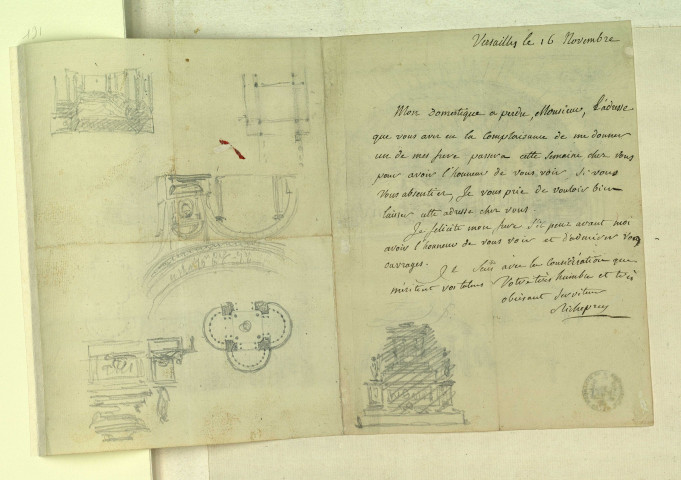 121
Versailles le 16 Novembre
Mon Domestique a perdu, Monsieur, l'adresse
que vous avez eu la Complaisance de me donner
un de mes frere passera cette semaine chez vous
pour avoir l'honneur de vous voir si vous
vous absentiez, Je vous prie de vouloir bien
laisser cette adresse chez vous.
Je felicite mon frere s'il peut avant moi
avoir l'honneur de vous voir et d'admirer vos
ouvrages.
Je suis avec la considération que
méritent vos talens Votre très humble et très
obéissant Serviteur